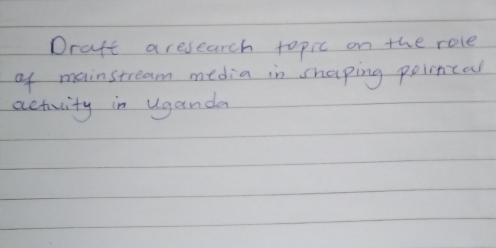 Draft a research topic on the role
of mainstream media in shaping political
activity in Uganda